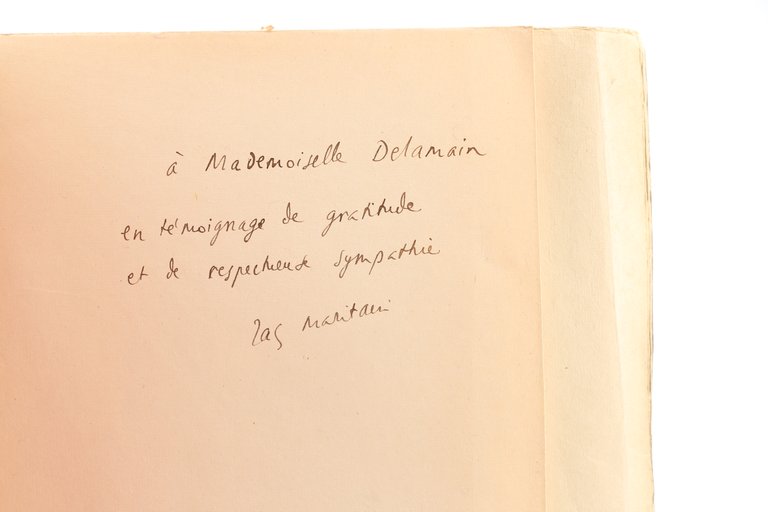 à Mademoiselle Delamain
en témoignage de gratitude
et de respectueuse sympathie
Jacq Maritain